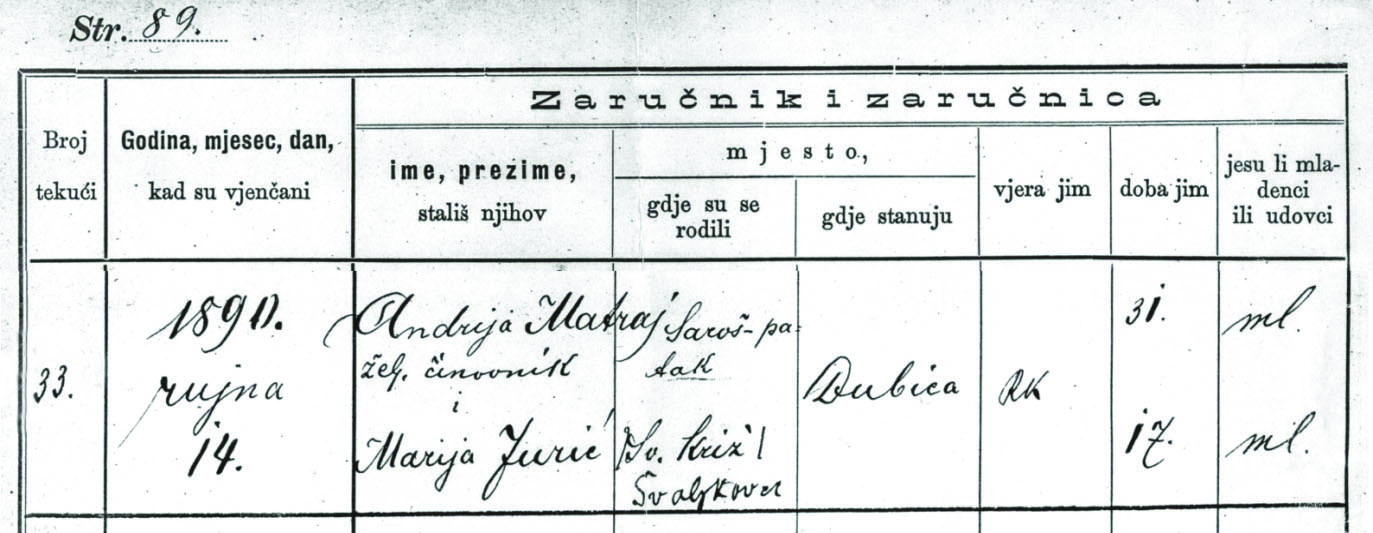 Str. 89.
Zaručnik i zaručnica
Broj tekući
Godina, mjesec, dan,
kad su vjenčani
ime, prezime,
stališ njihov
mjesto,
gdje su se
rodili
gdje stanuju
vjera jim
doba jim
jesu li mla-
denci
ili udovci
33.
1890.
rujna
14.
Andrija Matraj
želj. činovnik
i
Marija Jurić
Saroš-pa-
tak
Sv. Križ
Dubica
RK
31.
17.
ml.
ml.